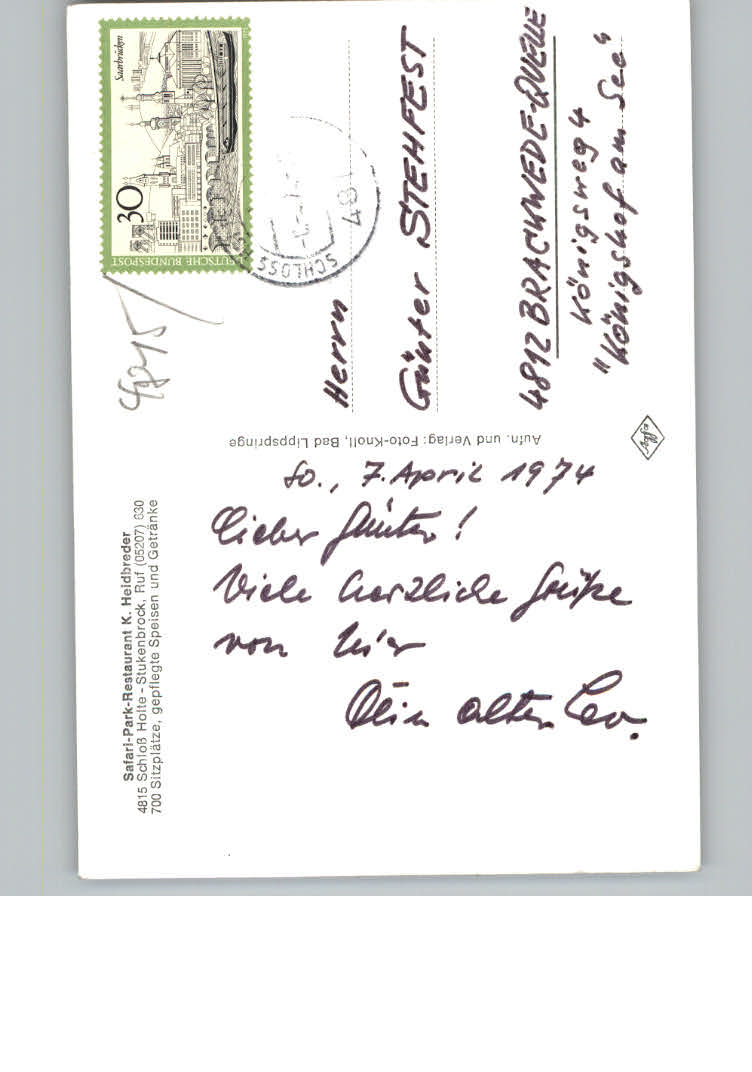 Safari-Park-Restaurant K. Heidbreder
4815 Schloß Holte-Stukenbrock, Ruf (05207) 630
700 Sitzplätze, gepflegte Speisen und Getränke
So., 7. April 1974
Lieber Günter!
Viele herzliche Grüße
von hier
Dein alter Leo.
Aufn. und Verlag: Foto-Knoll, Bad Lippspringe
Saarbrücken
30
DEUTSCHE BUNDESPOST
SCHLOSS
481
Herrn
Günter STEHFEST
4812 BRACKWEDE-QUELLE
Königsweg 4
"Königshof am See"
Agfa